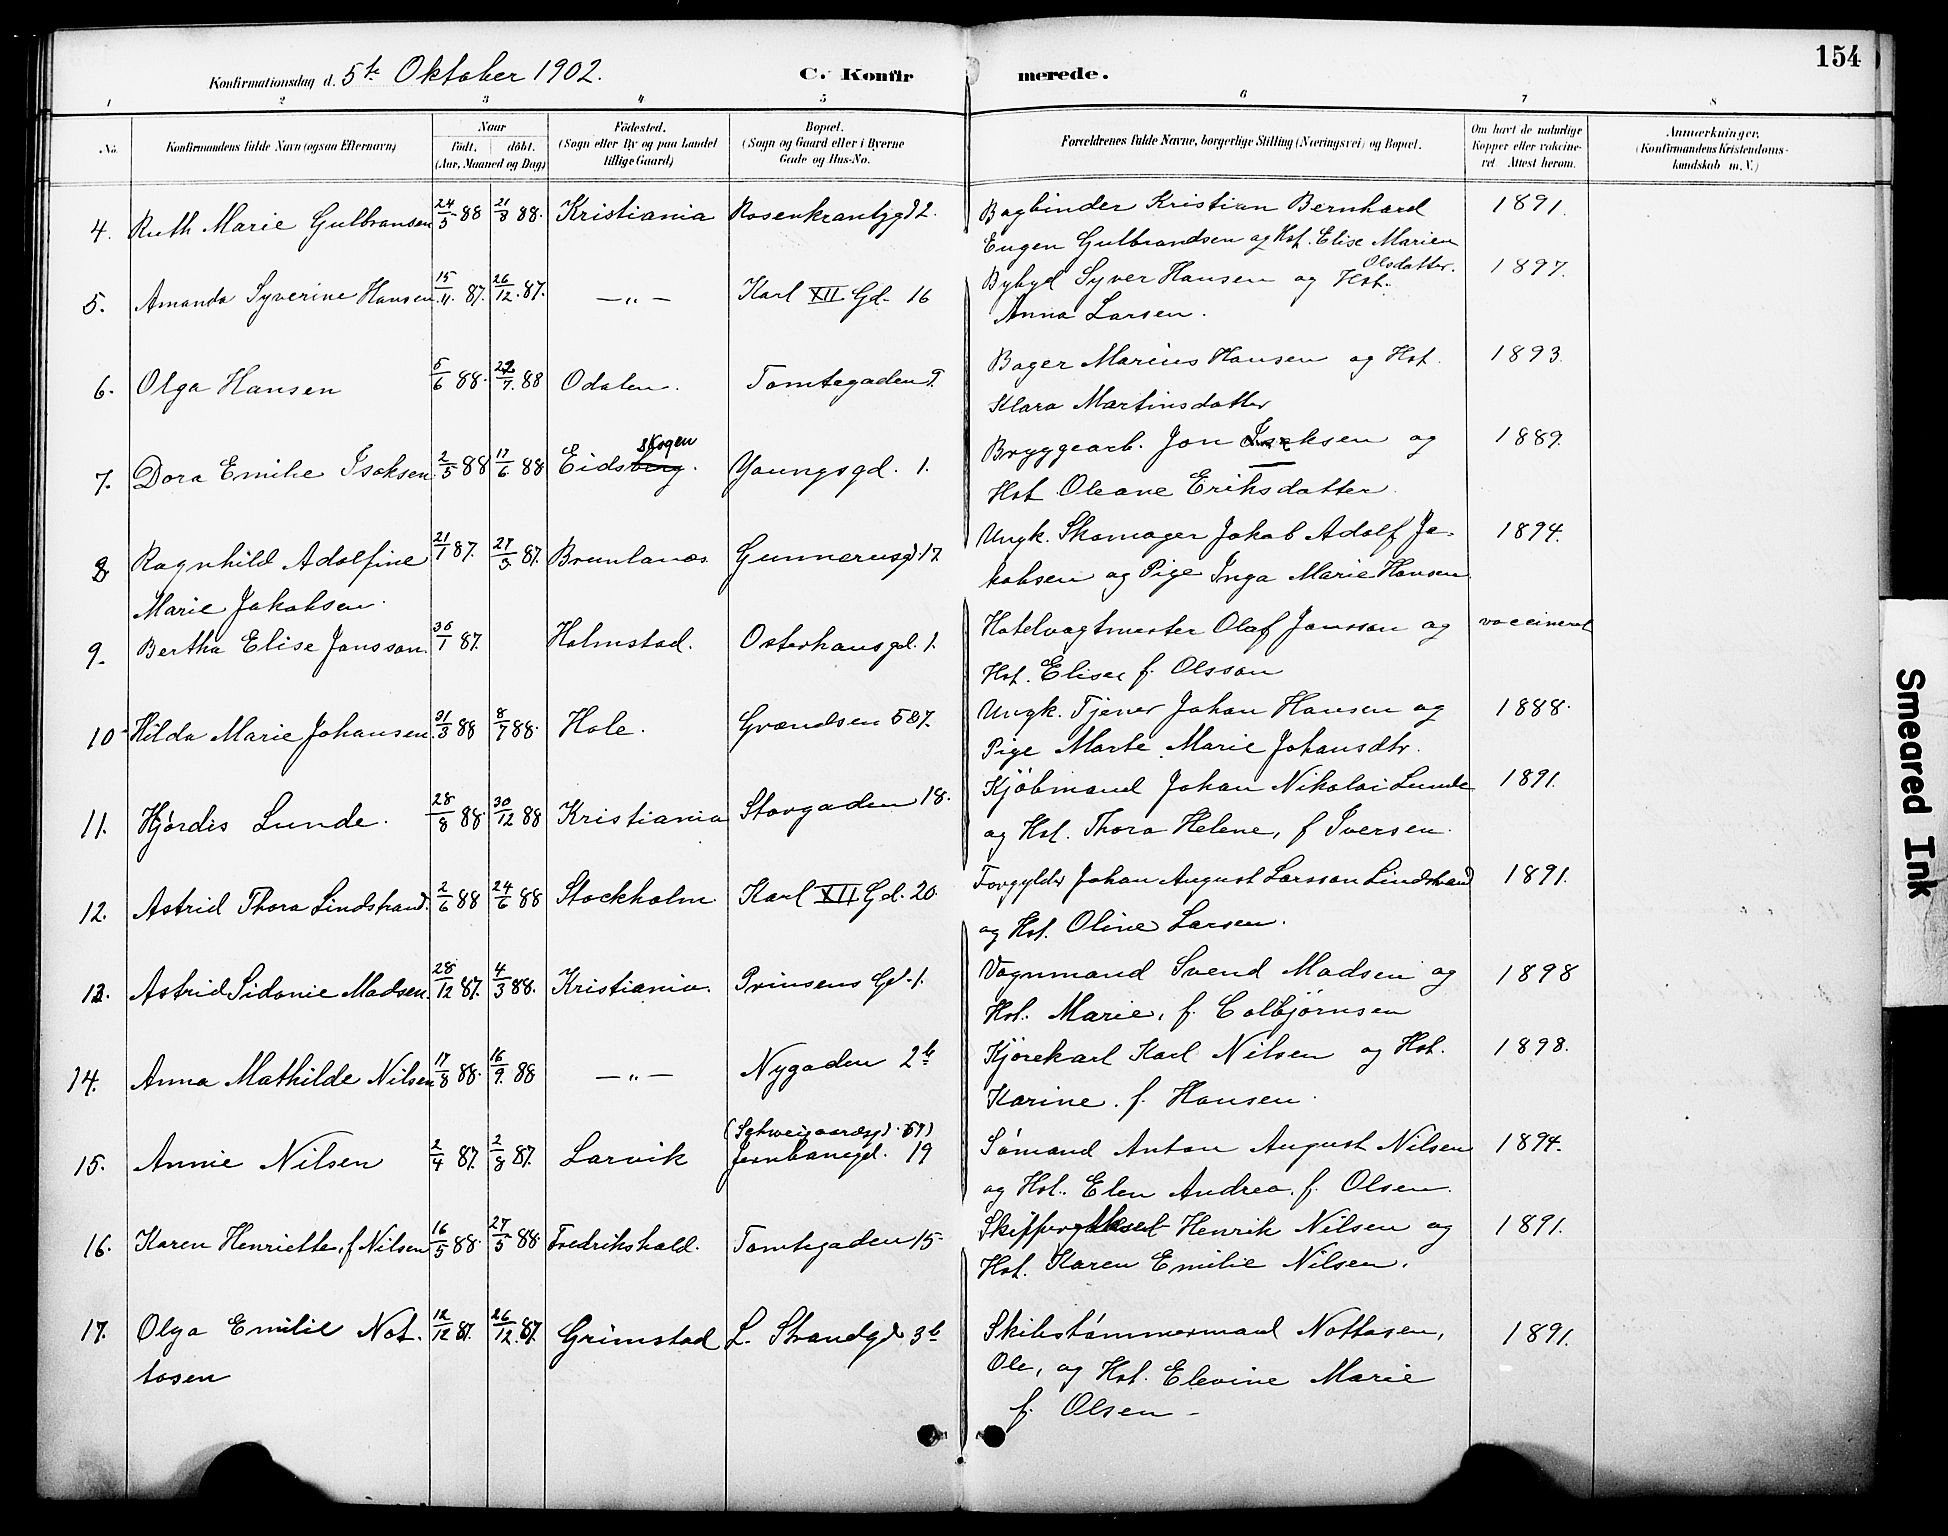 154
Konfirmationsdag d. 5te Oktober 1902. C. Konfirmerede.
1 2 3 4 5 6 7 8
No. Konfirmandens fulde Navn (ogsaa Efternavn) Naar Födt. döbt. (Aar, Maaned og Dag) Födested. (Sogn eller By og paa Landet tillige Gaard) Bopæl. (Sogn og Gaard eller i Byerne Gade og Hus-No. Forældrenes fulde Navne, borgerlige Stilling (Næringsvei) og Bopæl. Om havt de naturlige Kopper eller vakcineret. Attest herom. Anmærkninger. (Konfirmandens Kristendomskundskab m.V.)
4. Ruth Marie Gulbransen 24/5 88 21/8 88. Kristiania Rosenkrantzgd 2. Bogbinder Kristian Bernhard 1891.
Eugen Gulbrandsen og Hst. Elise Marien
Olsdatter.
5. Amanda Syverine Hansen 15/11. 87. 26/12. 87. —„— Karl XII Gd. 16 Bybyd Syver Hansen og Hst. 1897.
Anna Larsen.
6. Olga Hansen 5/6 88. 22/7. 88 Odalen. Tomtegaden 9. Bager Marius Hansen og Hst. 1893.
Klara Martinsdatter
7. Dora Emilie Isaksen 2/5 88 17/6 88 Eidsberg. skogen Youngsgd. 1. Bryggearb. Jon Isaksen og 1889.
Hst Oleane Eriksdatter.
8 Ragnhild Adolfine 21/1 87. 27/3 87. Brunlanæs Gunnerusgd. 17. Ungk. Skomager Jakob Adolf Ja- 1894.
Marie Jakobsen. kobsen og Pige Inga Marie Hansen
9. Bertha Elise Jansson. 30/1 87. Halmstad. Osterhausgd. 1. Hotelvagtmester Olaf Jansson og vaccineret
Hst. Elise f. Olsson
10 Hilda Marie Johansen 31/3 88 8/7 88. Hole. Grændsen 5 Ungk. Tjener Johan Hansen og 1888.
Pige Marte Marie Johansdtr.
11. Hjördis Lunde. 28/8 88. 30/12 88 Kristiania Storgaden 18. Kjöbmand Johan Nikolai Lunde 1891.
og Hst. Thora Helene, f Iversen.
12. Astrid Thora Lindstrand. 2/6 88 24/6 88 Stockholm. Karl XII Gd. 20. Forgylder Johan August Larsson Lindstrand 1891.
og Hst. Oline Larsen.
13. Astrid Sidonie Madsen. 28/12 87. 4/3 88. Kristiania. Prinsens Gd. 1. Vognmand Svend Madsen og 1898
Hst. Marie, f. Colbjørnsen
14. Anna Mathilde Nilsen 17/8 88. 16/9. 88 —„— Nygaden 2b Kjørekarl Karl Nilsen og Hst. 1898.
Karine. f. Hansen.
(Schweigaardsgd. 57)
15. Annie Nilsen 2/4 87. 2/8 87. Larvik Jernbanegd. 19 Sömand Anton August Nilsen 1894.
og Hst. Elen Andrea. f. Olsen.
16. Karen Henriette, f Nilsen 16/5 88. 27/5 88. Fredrikshald. Tomtegaden 15 Skipper Aksel Henrik Nilsen og 1891.
Hst. Karen Emilie Nilsen.
17. Olga Emilie Not- 12/12 87. 26/12. 87. Grimstad L. Strandgd 3b Skibstömmermand Nottosen, 1891.
tosen Ole, og Hst. Elevine Marie
f. Olsen –
Smeared Ink